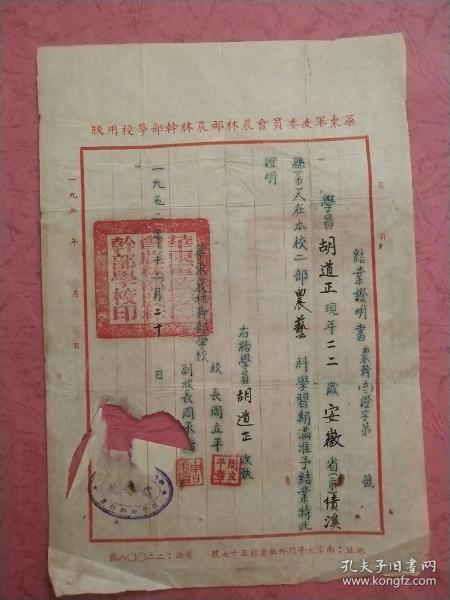 華東軍政委員會農林部農林幹部學校用牋
結業證明書 農幹(二)證字第 號
學員胡道正現年二二歲安徽省(市)績溪
縣(市)人在本校二部農藝科學習期滿准予結業特此
證明
右給學員胡道正收執
華東農林幹部學校
校長周立平
副校長周承
一九五二年十二月二十日
一九五 年 月 日
幹部學校印
地址:南京太平門外板倉村五十七號 電話:二二〇〇八號
孔夫子旧书网